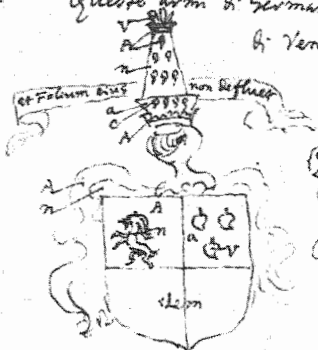 Queste armi di Germa
V
di Ven
A
n
et Folium eius non defluet
a
c
A
A
n
A
n
a
V